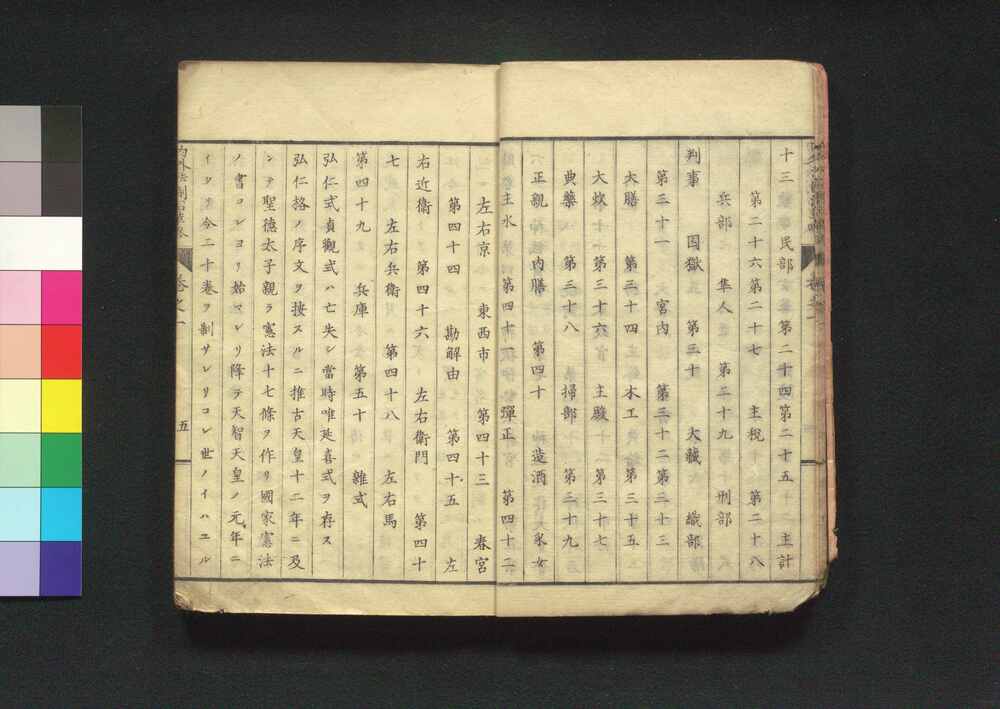 十三 民部 第二十四第二十五 主計
第二十六第二十七 主税 第二十八
兵部 隼人 第二十九 刑部
判事 囚獄 第三十 大藏 織部
第三十一 宮内 第三十二第三十三
大膳 第三十四 木工 第三十五
大炊 第三十六 主殿 第三十七
典藥 第三十八 掃部 第三十九
正親 内膳 第四十 造酒 采女
主水 第四十一 彈正 第四十二
左右京 東西市 第四十三 春宮
第四十四 勘解由 第四十五 左
右近衛 第四十六 左右衛門 第四十
七 左右兵衛 第四十八 左右馬
第四十九 兵庫 第五十 雜式
弘仁式貞觀式ハ亡失シ當時唯延喜式ヲ存ス
弘仁格ノ序文ヲ按スルニ推古天皇十二年ニ及
ンテ聖德太子親ラ憲法十七條ヲ作リ國家憲法
ノ書コレヨリ始マレリ降テ天智天皇ノ元年ニ
イタ 令二十卷ヲ制サレリコレ世ノイハユル
卷之一
五